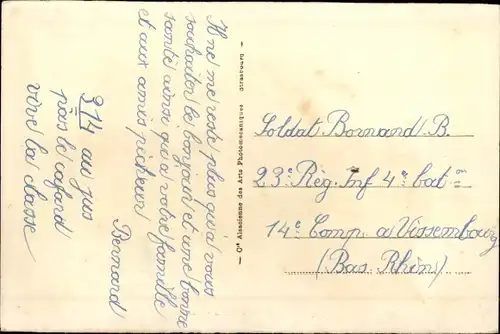 Il ne me reste plus qu'a vous
souhaiter le bonjour et une bonne
santé ainsi qu'a votre famille
et aux amis pécheur
Bernard
314 au jus
pas le cafard
vive la classe
— Cie Alsacienne des Arts Photomécaniques Strasbourg —
Soldat Bornand B.
23e Rég. Inf 4e bat=m
14e Comp. a Vissembourg
(Bas. Rhin)